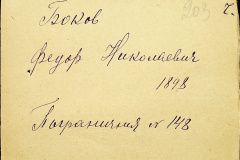 203 г.
Боков
Федор Николаевич
1898
Пограничная № 148